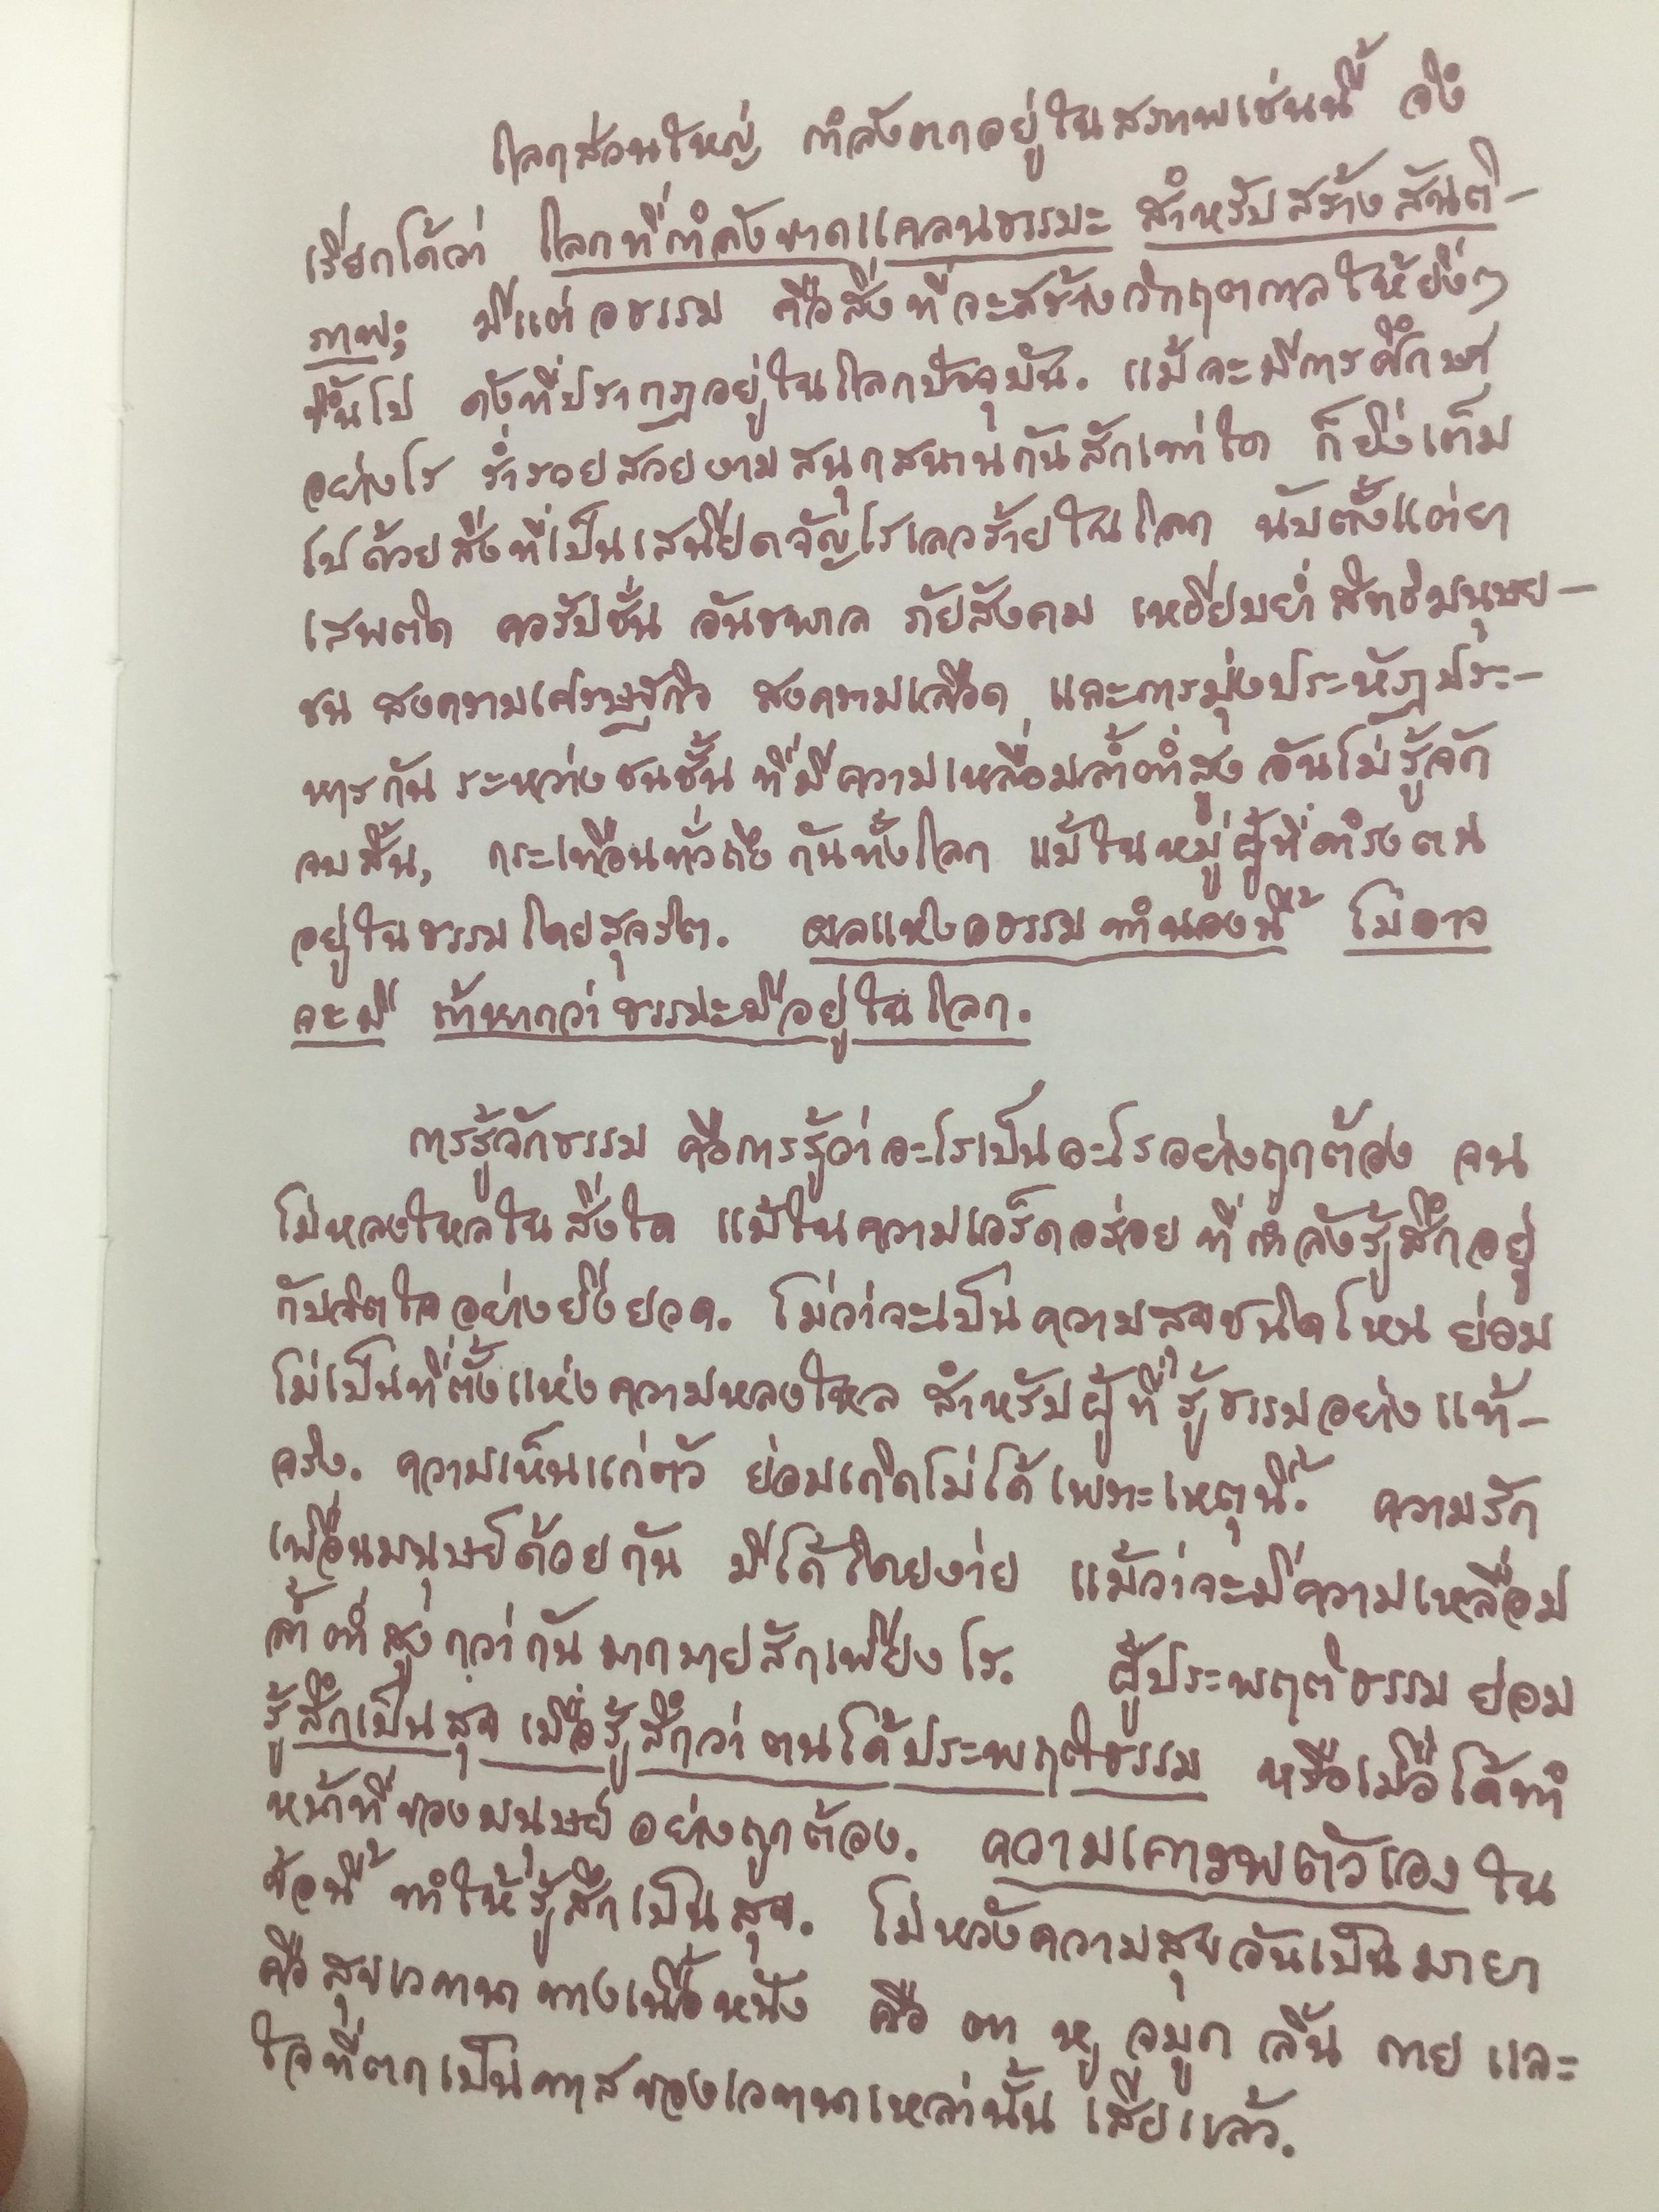 โลกส่วนใหญ่ กำลังตกอยู่ในสภาพเช่นนี้ จึง
เรียกได้ว่า โลกที่กำลังขาดแคลนธรรมะ สำหรับสร้างสันติ-
ภาพ; มีแต่อธรรม คือสิ่งที่จะสร้างวิกฤตกาลให้ยิ่งๆ
ขึ้นไป ดังที่ปรากฏอยู่ในโลกปัจจุบัน. แม้จะมีการศึกษา
อย่างไร ร่ำรวยสวยงามสนุกสนานกันสักเท่าใด ก็ยิ่งเต็ม
ไปด้วยสิ่งที่เป็นเสนียดจัญไรเลวร้ายในโลก นับตั้งแต่ยา
เสพติด คอรัปชั่น อันธพาล ภัยสังคม เหยียบย่ำสิทธิมนุษย-
ชน สงครามเศรษฐกิจ สงครามเลือด และการมุ่งประหัฏประ-
หารกัน ระหว่างชนชั้น ที่มีความเหลื่อมล้ำต่ำสูง อันไม่รู้จัก
จบสิ้น, กระเทือนทั่วถึงกันทั้งโลก แม้ในหมู่ผู้ที่ดำรงตน
อยู่ในธรรมโดยสุจริต. ผลแห่งอธรรมทำนองนี้ ไม่อาจ
จะมี ถ้าหากว่าธรรมะมีอยู่ในโลก.
การรู้จักธรรม คือการรู้ว่าอะไรเป็นอะไรอย่างถูกต้อง จน
ไม่หลงใหลในสิ่งใด แม้ในความเอร็ดอร่อย ที่กำลังรู้สึกอยู่
กับจิตใจอย่างยิ่งยวด. ไม่ว่าจะเป็นความสุขชนิดไหน ย่อม
ไม่เป็นที่ตั้งแห่งความหลงใหล สำหรับผู้ที่รู้ธรรมอย่างแท้-
จริง. ความเห็นแก่ตัว ย่อมเกิดไม่ได้เพราะเหตุนี้. ความรัก
เพื่อนมนุษย์ด้วยกัน มีได้โดยง่าย แม้ว่าจะมีความเหลื่อม
ล้ำต่ำสูงกว่ากันมากมายสักเพียงไร. ผู้ประพฤติธรรม ย่อม
รู้สึกเป็นสุข เมื่อรู้สึกว่าตนได้ประพฤติธรรม หรือเมื่อได้ทำ
หน้าที่ของมนุษย์อย่างถูกต้อง. ความเคารพตัวเอง ใน
ข้อนี้ ทำให้รู้สึกเป็นสุข. ไม่หวังความสุขอันเป็นมายา
คือสุขเวทนาทางเนื้อหนัง คือ ตา หู จมูก ลิ้น กาย และ
ใจที่ตกเป็นทาสของเวทนาเหล่านั้น เสียแล้ว.